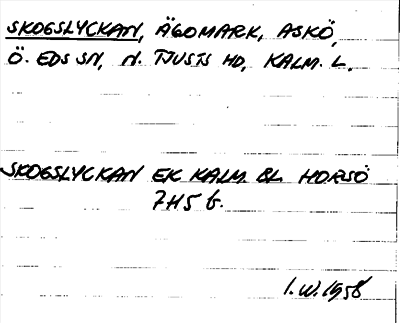 SKOGSLYCKAN, ÄGOMARK, ASKÖ,
Ö. EDS SN, N. TJUSTS HD, KALM. L.
SKOGSLYCKAN EK KALM. BL. HORSÖ
7H5b.
I.W. 1958